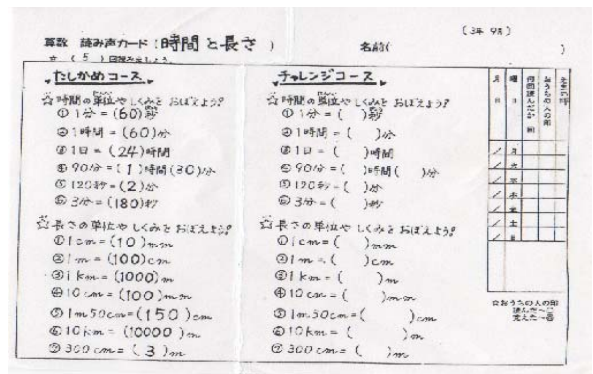 (3年 9月)
算数 読み声カード(時間と長さ) 名前( )
☆(5)回読みましょう。
たしかめコース
☆時間の単位やしくみをおぼえよう!
①1分=(60)秒
②1時間=(60)分
③1日=(24)時間
④90分=(1)時間(30)分
⑤120秒=(2)分
⑥3分=(180)秒
☆長さの単位やしくみをおぼえよう!
①1cm=(10)mm
②1m=(100)cm
③1km=(1000)m
④10cm=(100)mm
⑤1m50cm=(150)cm
⑥10km=(10000)m
⑦300cm=(3)m
チャレンジコース
☆時間の単位やしくみをおぼえよう!
①1分=( )秒
②1時間=( )分
③1日=( )時間
④90分=( )時間( )分
⑤120秒=( )分
⑥3分=( )秒
☆長さの単位やしくみをおぼえよう!
①1cm=( )mm
②1m=( )cm
③1km=( )m
④10cm=( )mm
⑤1m50cm=( )cm
⑥10km=( )m
⑦300cm=( )m
月 日
曜日
何回読んだか 回
おうちの人の印
先生の印
/ 月
/ 火
/ 水
/ 木
/ 金
/ 土
/ 日
☆おうちの人の印
読んだ→○
覚えた→◎